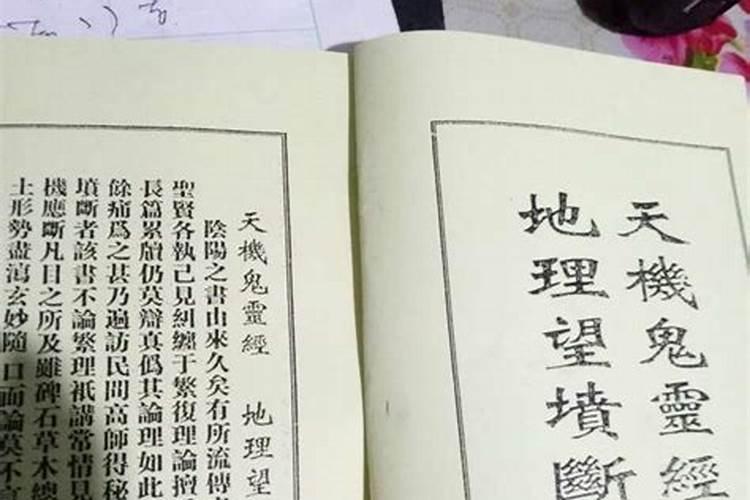 天機鬼靈經
地理望墳斷
天機鬼靈經 地理望
陰陽之書由來久矣有所流傳
聖賢各執己見糾纏于繁復理論擅
長篇累牘仍莫辯真偽其論理如此
餘痛爲之甚乃遍訪民間高師得秘
墳斷者該書不論繁理祇講常情見
機應斷凡目之所及雖碑石草木總
土形勢盡瀉玄妙隨口而論莫不